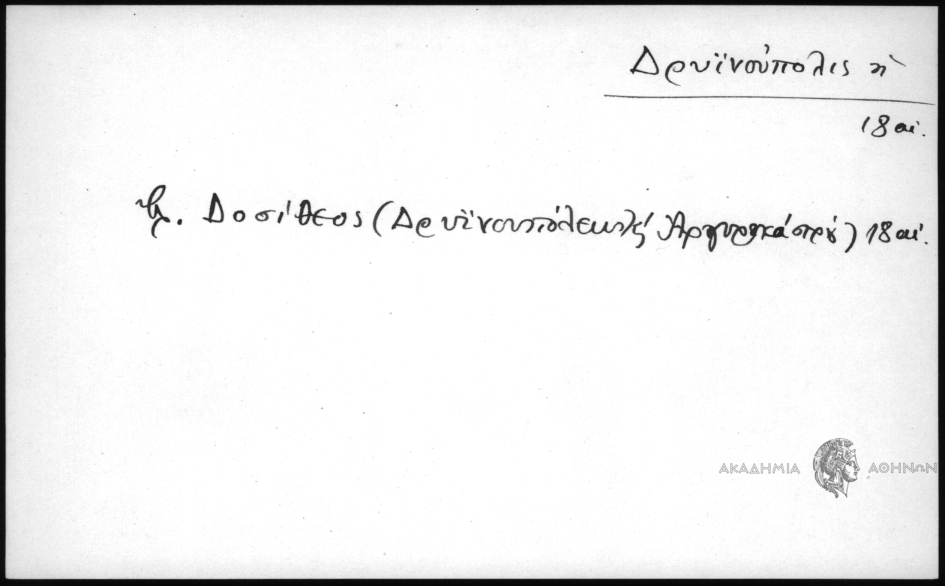 Δρυϊνούπολις ἡ
18 αἰ.
βλ. Δοσίθεος (Δρυϊνουπόλεως κ Ἀργυροκάστρου) 18 αἰ.
ΑΚΑΔΗΜΙΑ ΑΘΗΝΩΝ